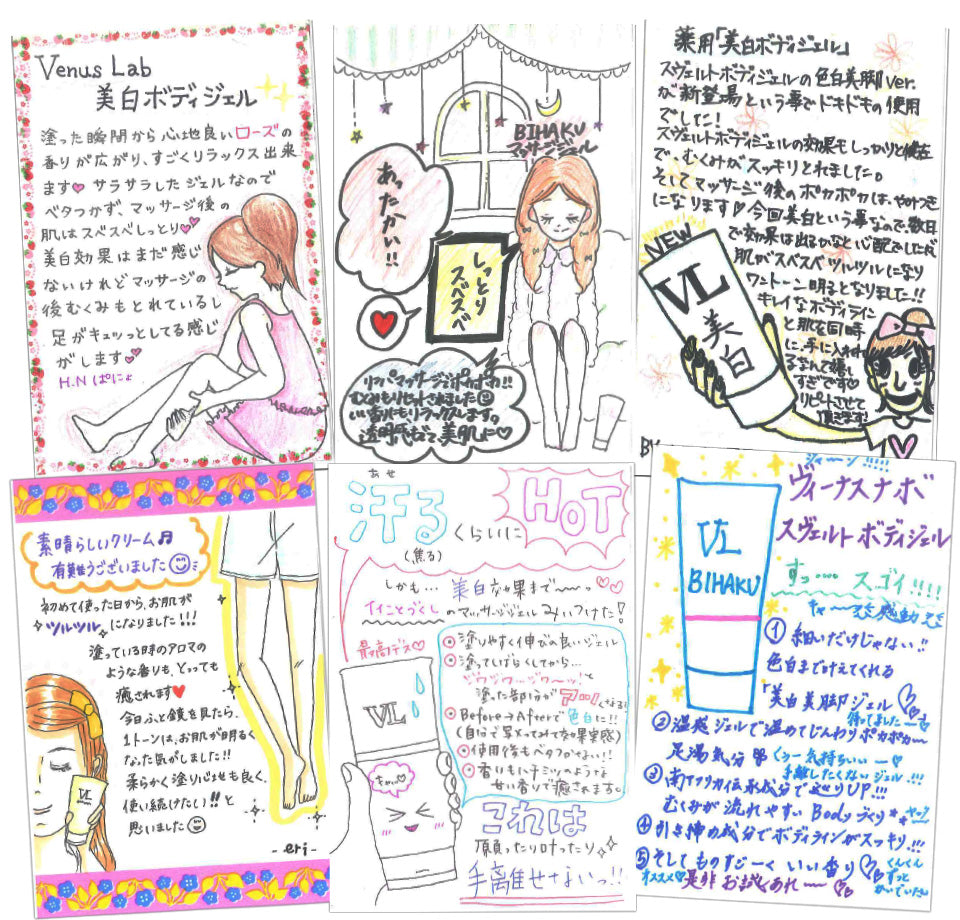 Venus Lab
美白ボディジェル
塗った瞬間から心地良いローズの
香りが広がり、すごくリラックス出来
ます サラサラしたジェルなので
ベタつかず、マッサージ後の
肌はスベスベしっとり
美白効果はまだ感じ
ないけれどマッサージの
後むくみもとれているし
足がキュッとしてる感じ
がします
H.N ぱにょ
BIHAKU
マッサージジェル
あったかい!!
しっとり
スベスベ
リンパマッサージでポカポカ!!
むくみもリセットされました
いい香りもリラックスします。
透明感がでて美肌に
薬用「美白ボディジェル」
スヴェルトボディジェルの色白美脚ver.
が新登場という事でドキドキの使用
でした!
スヴェルトボディジェルの効果もしっかりと健在
で、むくみがスッキリとれました。
そしてマッサージ後のポカポカは、やみつき
になります 今回美白という事なので、数日
で効果は出るかなと心配でしたが
肌がスベスベツルツルになり
ワントーン明るくなりました!!
キレイなボディライン
と肌を同時
に、手に入れれ
るなんて嬉し
すぎです
リピートさせて
頂きます!
NEW
VL
美白
BY
素晴らしいクリーム♬
有難うございました
初めて使った日から、お肌が
ツルツルになりました!!!
塗っている時のアロマの
ような香りも、とっても
癒されます
今日ふと鏡を見たら、
1トーンは、お肌が明るく
なった気がしました!!
柔らかく塗り心地も良く、
使い続けたい!!と
思いました
VL
-eri-
あせ
汗るくらいに HOT
(焦る)
しかも… 美白効果まで〜〜っ
イイことづくしのマッサージジェルみいつけた!
最高デス
塗りやすく伸びの良いジェル
塗ってしばらくしてから…
ジワジワ〜ッジワ〜ッ!と
塗った部分がアツくなる!
Before→Afterで色白に!!
(自分で写メってみて効果実感)
使用後もベタつかない!!
香りもハチミツのような
甘い香りで癒されます。
VL
これは
願ったり叶ったり
手離せないっ!!
ジャーン!!!!!
ヴィーナスナボ
スヴェルト ボディジェル
すっ…… スゴイ!!!!
VL
BIHAKU
①細いだけじゃない!!
色白まで叶えてくれる
「美白美脚ジェル
待ってました
②温感ジェルで温めてじんわりポカポカ〜
足湯気分
くぅー気持ちいいー
手離したくないジェル!!!
③南アフリカ伝承成分で巡りUP!!!
むくみが流れやすいBodyづくり
④引き締め成分でボディラインがスッキリ!!!
⑤そしてものすごーくいい香り
くんくん
ずっと
かいでいたい
オススメ 是非お試しあれー